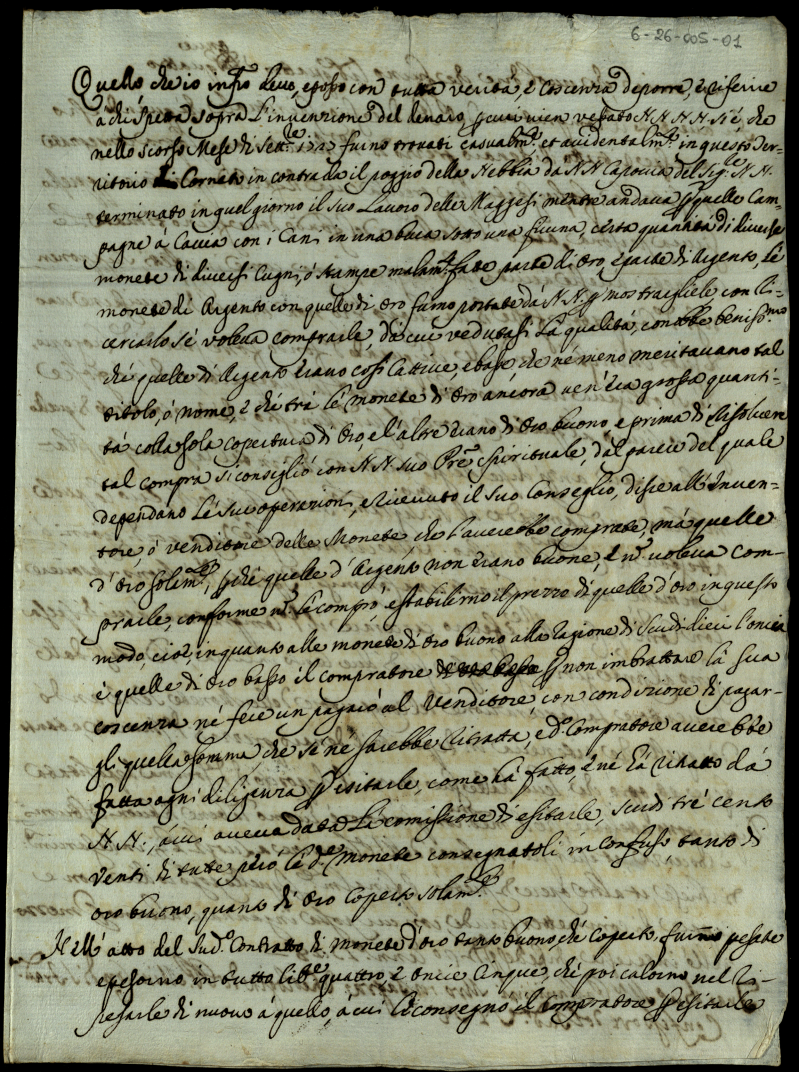 6-26-005-01
Quello che io infr̃o devo, e posso con tutta verità, e coscenza deporre, e riferire
a chi spetta sopra l'invenzione del denaro, p cui vien vessato N N N N si è, che
nello scorso Mese di Sett.e furno trovati casualm.e et accidentalm.e in questo Ter-
ritorio di Corneto in contrada il poggio della Nebbia da N N Caporcia del Sig.e N N.
terminato in quel giorno il suo Lavoro delle Maggesi mentre andava p quelle Cam-
pagne á Caccia con i Cani in una buca sotto una ficuna, certa quantitá di diverse
monete di diversi Cugni, ó stampe malam.e fatte parte di oro, e parte di Argento, le
monete di Argento con quelle di oro furno portate dá N N. p mostrargliele con ri-
cercarlo sé voleva comprarle, di cui vedutasi la qualitá, conobbe beniss.mo
ché quelle di Argento erano cosi cattive, e basse che né meno meritavano tal
titolo, ó nome, e ché trá le monete di oro ancora ven'era grossa quanti-
tá colla sola copertura di oro, e l'altre erano di oro buono, e prima di risolvere
tal compra si consigliò con N N suo Pre spirituale, dal parere del quale
dependano le sue operazioni, e ricevuto il suo Conseglio, disse all'Inven-
tore, ó venditore delle Monete che l'averebbe comprate, má quelle
d'oro solam.e, pché quelle d'Argento non erano buone, e n. voleva com-
prarle, conforme n. le comprò, e stabilirno il prezzo di quelle d'oro in questo
modo, cioè, in quanto alle monete di oro buono alla ragione di Scudi dieci l'oncia
e quelle di oro basso il compratore p non imbrattare la sua
coscenza né fece un pagaró al Venditore, con condizione di pagar-
gli quella somma che sé né sarebbe ritratta, e d.o Compratore averebbe
fatta ogni diligenza p esitarle, come há fatto, e né há ritratto dá
N N., á cui aveva data la comissione di esitarle, scudi tré cento
venti di tutte però le d.e monete consegnatoli in confuso, tanto di
oro buono, quanto di oro coperto solam.e
Nell'atto del Sud.o Contratto di monete d'oro tanto buono, ché coperto, furno pesate
e pesorno in tutto lib.e quattro, e oncie cinque, ché poi calorno nel ri-
pesarle di nuovo á quello, á cui le consegnò il compratore p esitarle